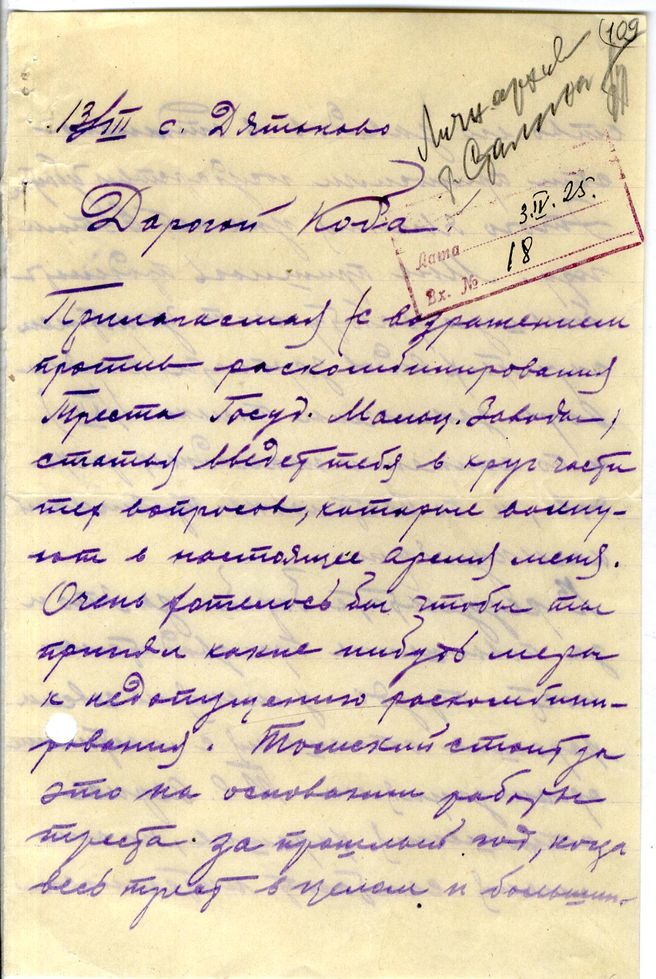 109
Личн архив
т. Сталина
13/III с. Дятьково
Дорогой Коба!
Дата 3.IV.25.
Вх. № 18
Прилагаемая (с возражением
против раскомбинирования
Треста Госуд. Мальц. Заводы)
статья введет тебя в круг части
тех вопросов, которые волну-
ют в настоящее время меня.
Очень хотелось бы чтобы ты
принял какие нибудь меры
к недопущению раскомбини-
рования. Томский стоит за
это на основании работы
треста за прошлый год, когда
весь трест в целом и большин-